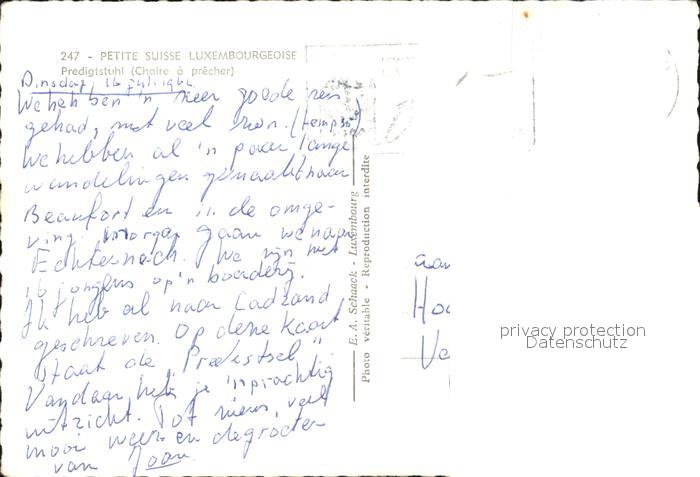 247 - PETITE SUISSE LUXEMBOURGEOISE
Predigtstuhl (Chaire à prêcher)
Dinsdag, 16 juli 196
We hebben 'n zeer goede reis
gehad, met veel zon. (temp 30°)
We hebben al 'n paar lange
wandelingen gemaakt naar
Beaufort en in de omge-
ving. Morgen gaan we naar
Echternach. We zijn met
16 jongens op 'n boerderij.
Ik heb al naar Cadzand
geschreven. Op deze kaart
staat de "Predikstoel"
Vandaar heb je 'n prachtig
uitzicht. Tot ziens, veel
mooi weer en de groeten
van Joan
E. A. Schaack - Luxembourg
Photo véritable - Reproduction interdite
aan
Ho
Ve
privacy protection
Datenschutz